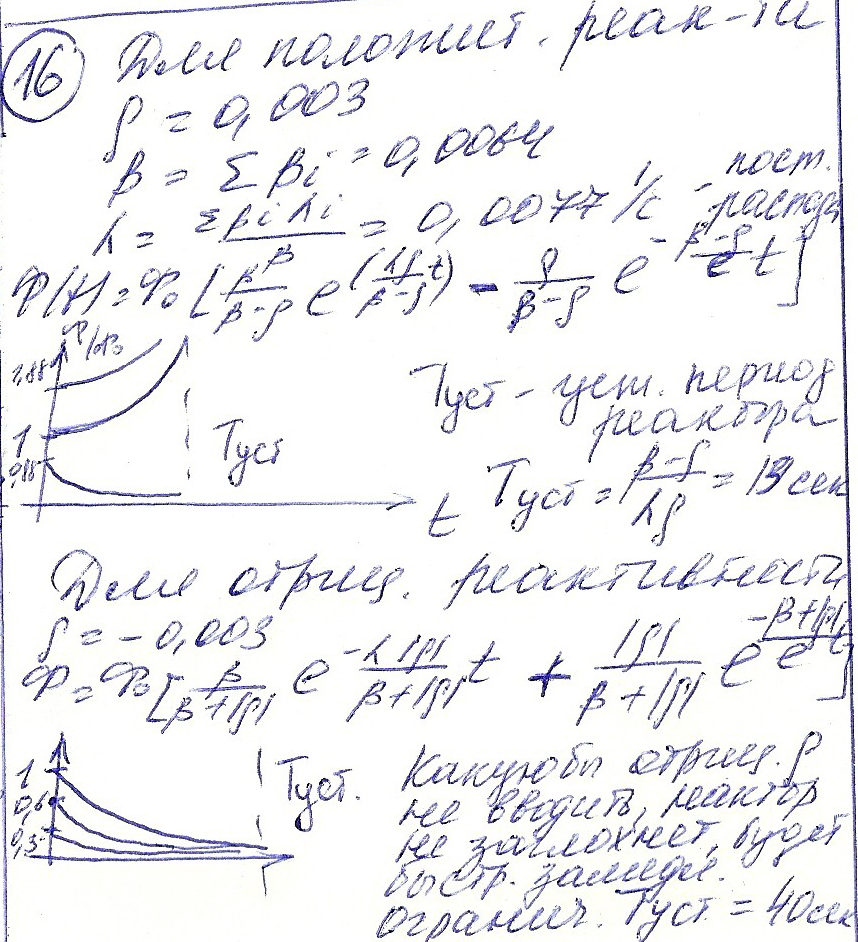 16 Для положит. реак-ти
ρ = 0,003
β = Σ βi = 0,0064
λ = Σβiλi / β = 0,0077 1/с - пост. распада
Ф(t) = Ф₀ [β/(β-ρ) e^(λρ/(β-ρ) t) - ρ/(β-ρ) e^(-(β-ρ)/ℓ t)]
Ф/Ф₀
1
Туст
t
Туст - уст. период
реактора
Туст = (β-ρ)/λρ = сек
Для отриц. реактивности
ρ = -0,003
Ф = Ф₀ [β/(β+|ρ|) e^(-λ|ρ|/(β+|ρ|) t) + |ρ|/(β+|ρ|) e^(-(β+|ρ|)/ℓ t)]
1
0,6
Туст.
Какую бы отриц. ρ
не вводить, реактор
не заглохнет, будет
быстр. замедл.
огранич. Туст = 40сек